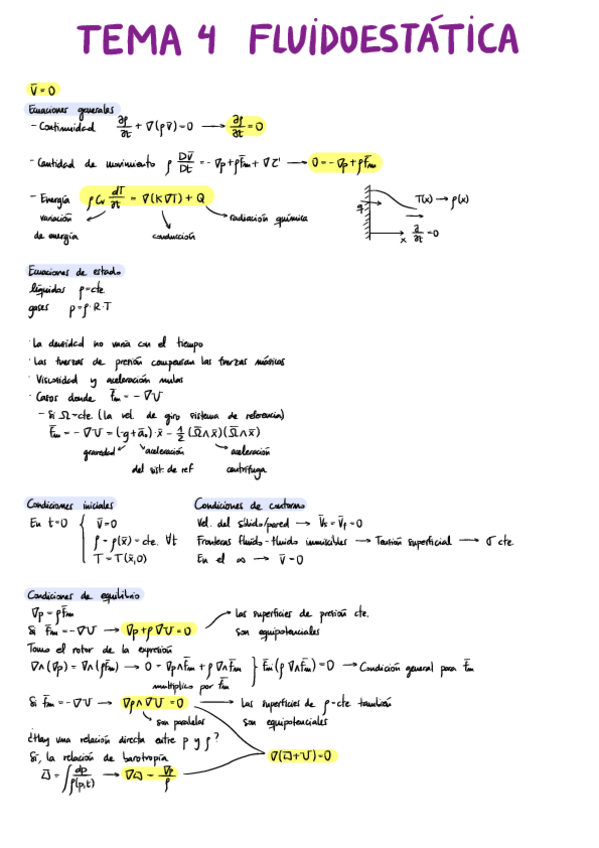 TEMA 4 FLUIDOESTÁTICA
v̄=0
Ecuaciones generales
- Continuidad ∂ρ/∂t + ∇(ρv̄)=0 → ∂ρ/∂t=0
- Cantidad de movimiento ρ Dv̄/Dt = -∇p+ρf̄m+∇τ' → 0=-∇p+ρf̄m
- Energía ρCv dT/∂t = ∇(K∇T)+Q
variación de energía
conducción
radiación química
q T(x) → ρ(x)
x ∂/∂t=0
Ecuaciones de estado
líquidos ρ=cte
gases p=ρ·R·T
· La densidad no varía con el tiempo
· Las fuerzas de presión compensan las fuerzas másicas
· Viscosidad y aceleración nulas
· Casos donde f̄m=-∇U
- Si Ω=cte. (la vel. de giro sistema de referencia)
f̄m=-∇U=(-g+ā₀)·x̄-1/2(Ω̄∧x̄)(Ω̄∧x̄)
gravedad aceleración del sist. de ref aceleración centrífuga
Condiciones iniciales
En t=0 { v̄=0
ρ=ρ(x̄)=cte. ∀t
T=T(x̄,0)
Condiciones de contorno
Vel. del sólido/pared → v̄s=v̄p=0
Fronteras fluido-fluido inmiscibles → Tensión superficial → σ cte
En el ∞ → v̄=0
Condiciones de equilibrio
∇p=ρf̄m
Si f̄m=-∇U → ∇p+ρ∇U=0 → Las superficies de presión cte.
son equipotenciales
Tomo el rotor de la expresión
∇∧(∇p)=∇∧(ρf̄m) → 0=∇ρ∧f̄m+ρ∇∧f̄m } f̄m(ρ∇∧f̄m)=0 → Condición general para f̄m
multiplico por f̄m
Si f̄m=-∇U → ∇ρ∧∇U=0 → Las superficies de ρ=cte también
son paralelas son equipotenciales
¿Hay una relación directa entre p y ρ?
Sí, la relación de barotropía ∇(ω̄+U)=0
ω̄=∫dp/ρ(p,t) → ∇ω=∇p/ρ